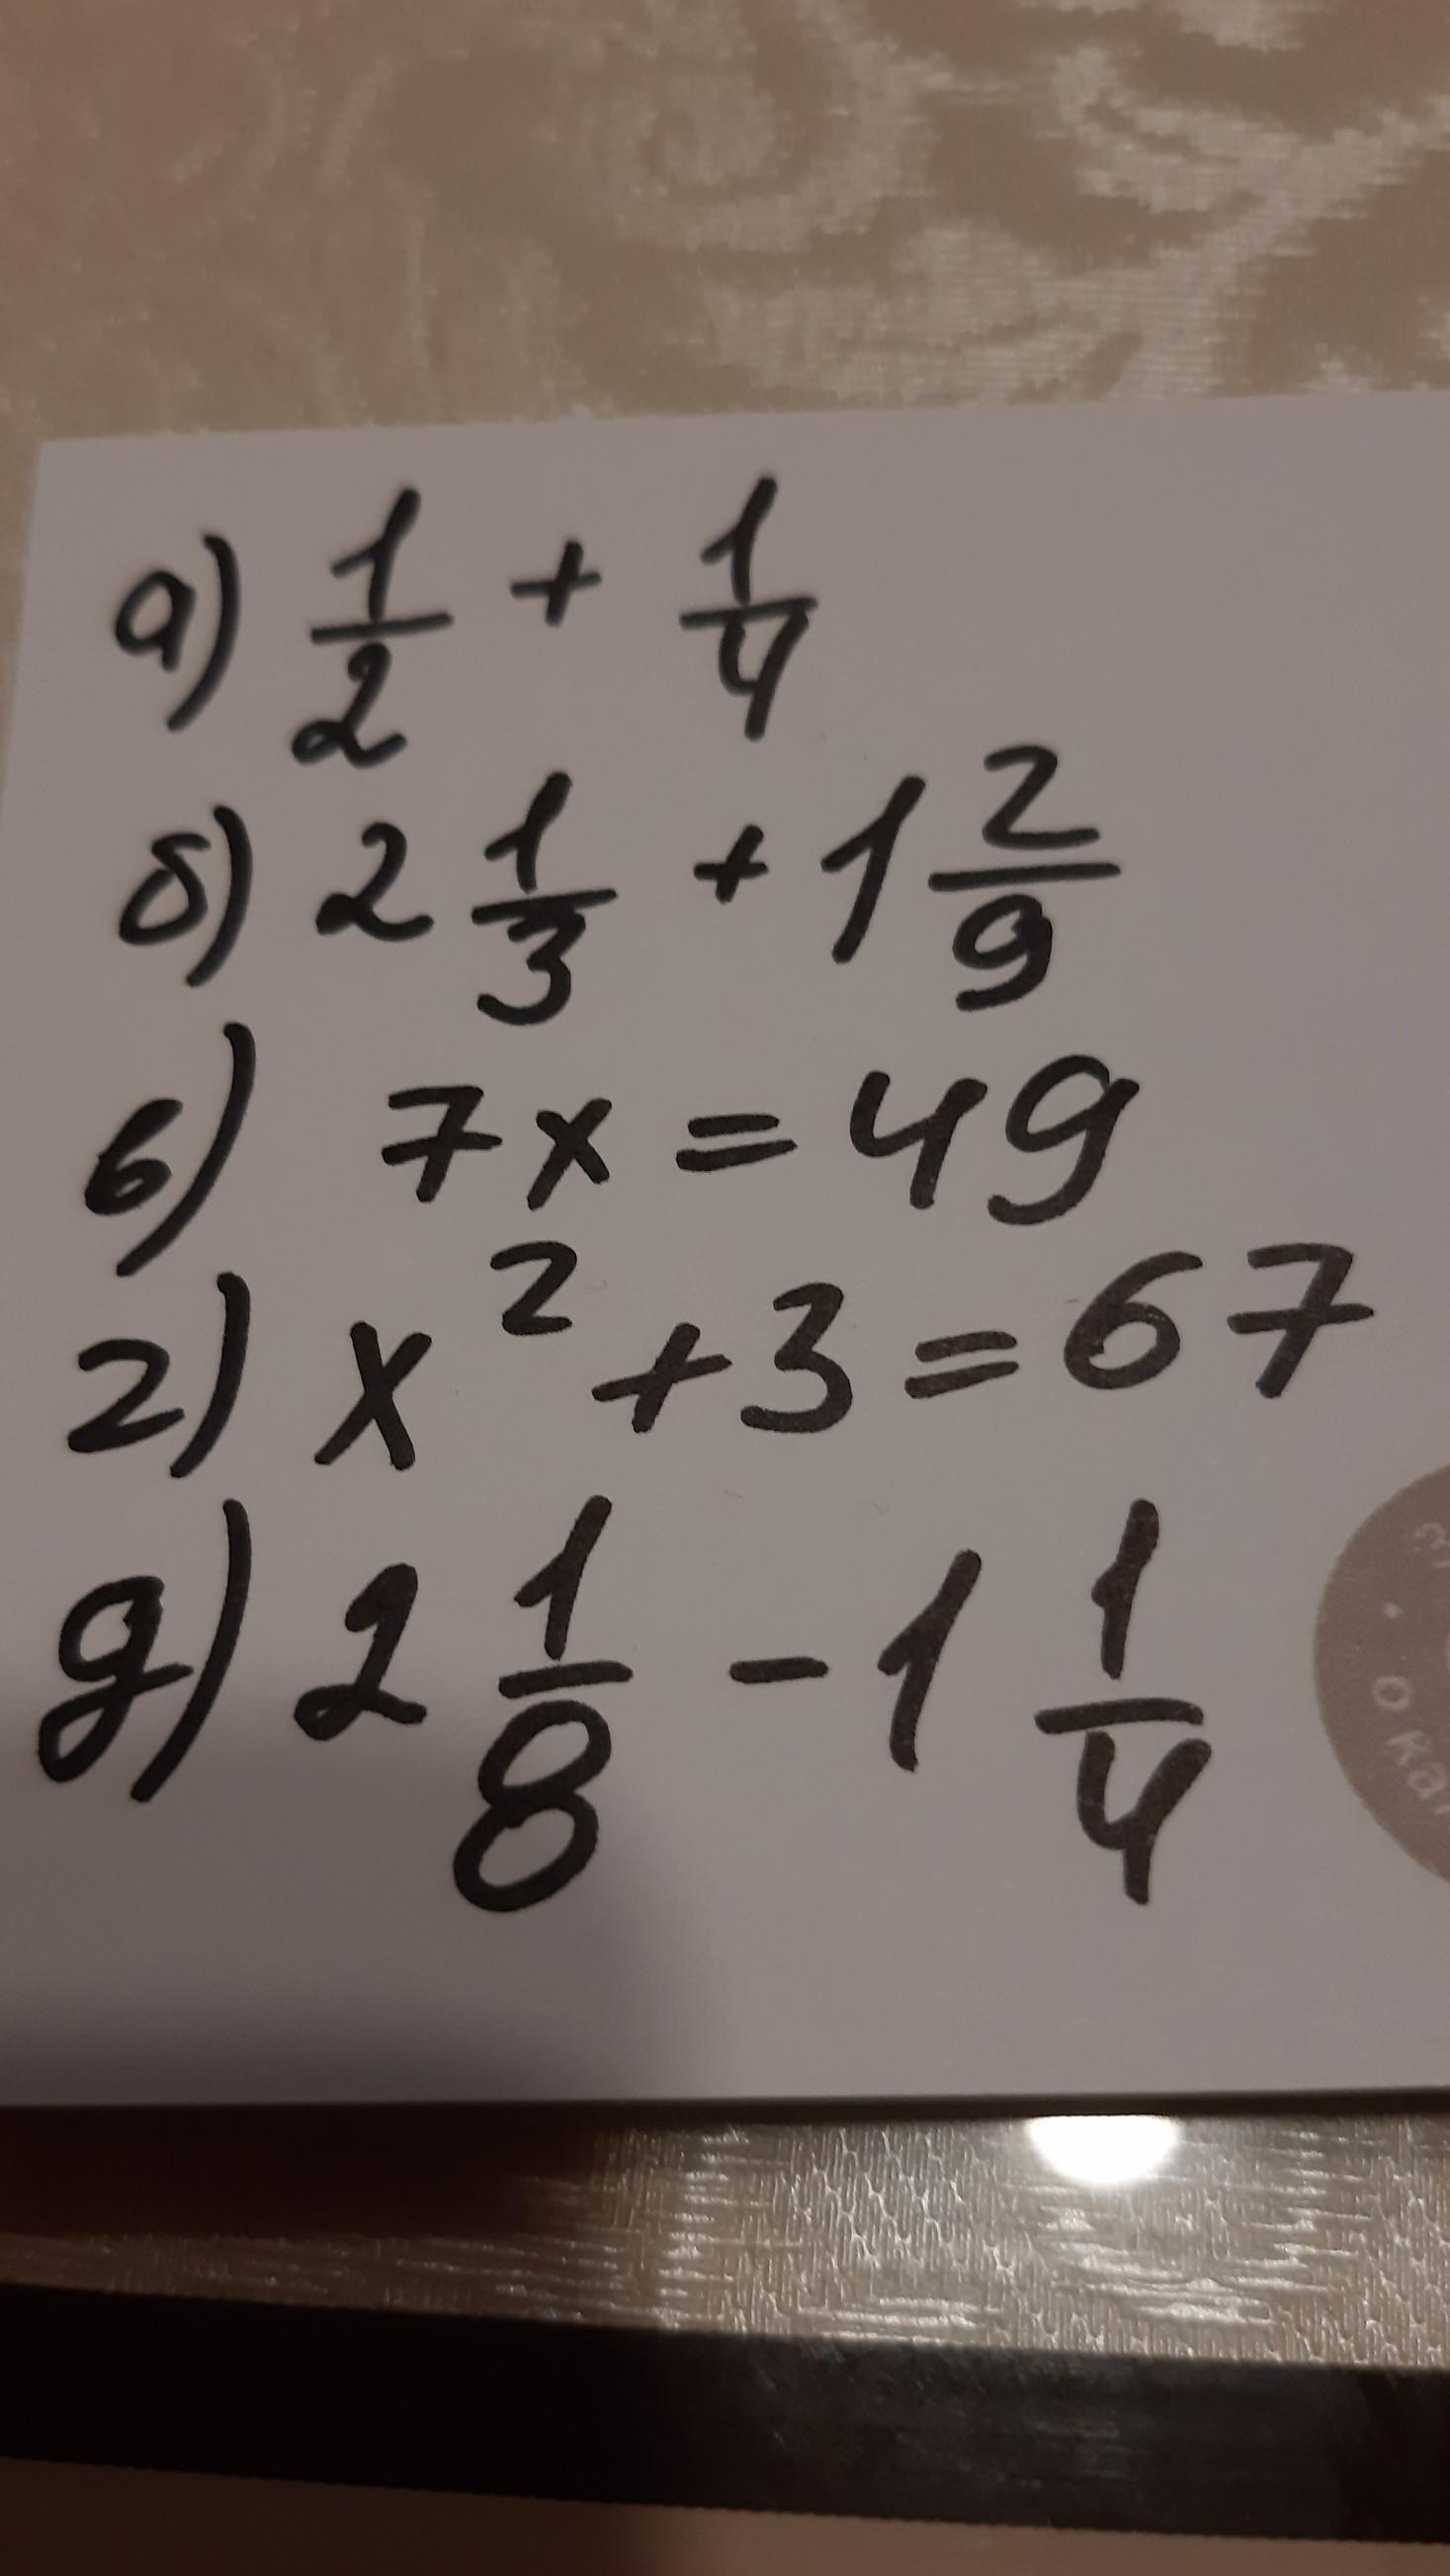 а) 1/2 + 1/4
б) 2 1/3 + 1 2/9
в) 7x = 49
г) x² + 3 = 67
д) 2 1/8 - 1 1/4